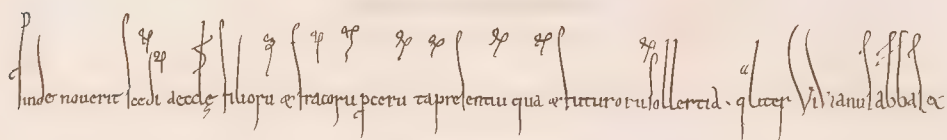 Pinde noverit sc̄e dī aeccle filiorū & fratorū pcerū tā presentiū quā & futurorū sollertia · qliter Vivianus abbas ex